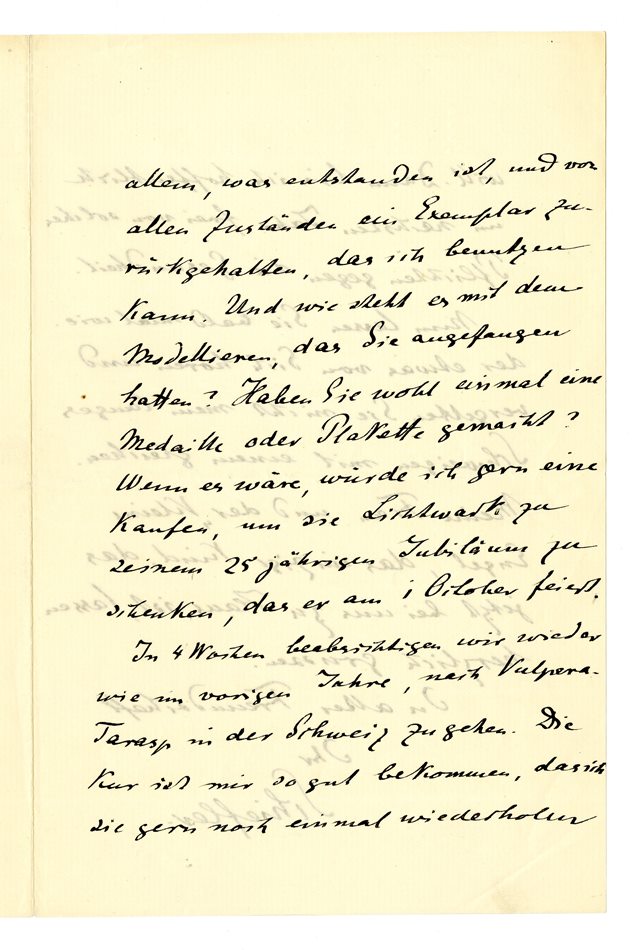 allem, was entstanden ist, und von
allen Zuständen ein Exemplar zu-
rückgehalten, das ich benutzen
kann. Und wie steht es mit dem
Modellieren, das Sie angefangen
hatten? Haben Sie wohl einmal eine
Medaille oder Plakette gemacht?
Wenn es wäre, würde ich gern eine
kaufen, um sie Lichtwark zu
seinem 25 jährigen Jubiläum zu
schenken, das er am 1 October feiert.
In 4 Wochen beabsichtigen wir wieder
wie im vorigen Jahre, nach Vulpera-
Tarasp in der Schweiz zu gehen. Die
Kur ist mir so gut bekommen, dass ich
sie gern noch einmal wiederholen